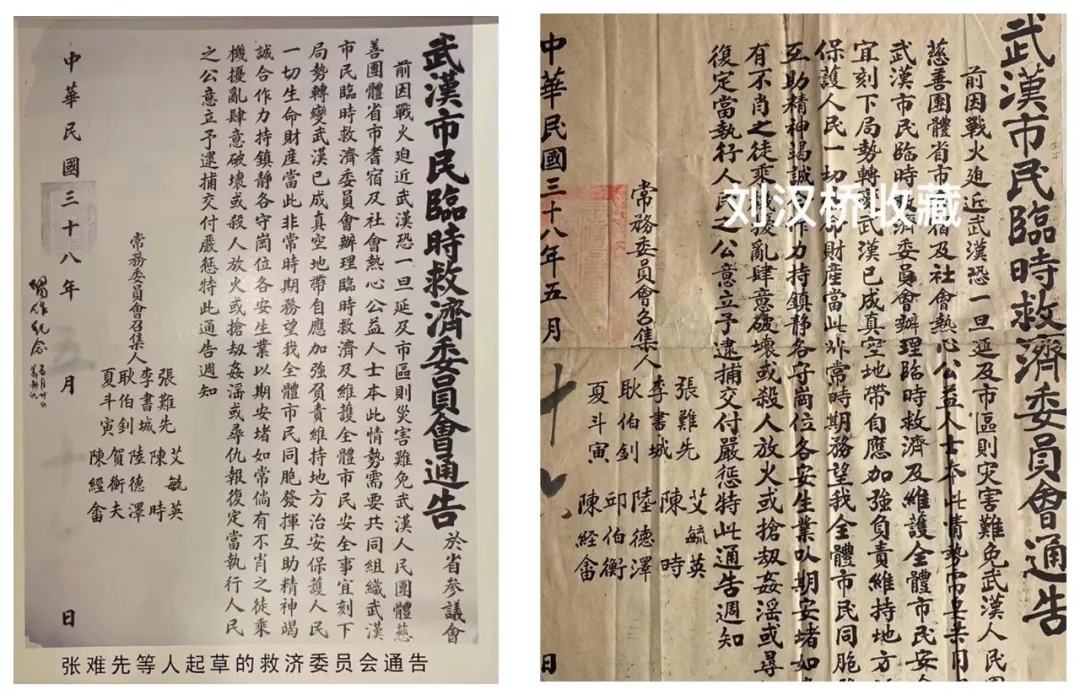 武漢市民臨時救濟委員會通告 於省參議會
前因戰火迫近武漢恐一旦延及市區則災害難免武漢人民團體慈
善團體省市耆宿及社會熱心公益人士本此情勢需要共同組織武漢
市民臨時救濟委員會辦理臨時救濟及維護全體市民安全事宜刻下
局勢轉變武漢已成真空地帶自應加強負責維持地方治安保護人民
一切生命財產當此非常時期務望我全體市民同胞發揮互助精神竭
誠合作力持鎮靜各守崗位各安生業以期安堵如常倘有不肖之徒乘
機擾亂肆意破壞或殺人放火或搶劫姦淫或尋仇報復定當執行人民
之公意立予逮捕交付嚴惩特此通告週知
常務委員會召集人
張難先 艾毓英
李書城 陳時
耿伯釗 陸德澤
夏斗寅 賀衡夫
陳經畬
留作紀念
中華民國三十八年五月十 日
张难先等人起草的救济委员会通告
武漢市民臨時救濟委員會通告
前因戰火迫近武漢恐一旦延及市區則灾害難免武漢人民團
慈善團體省市耆宿及社會熱心公益人士本此情勢需要共同
武漢市民臨時救濟委員會辦理臨時救濟及維護全體市民安全
宜刻下局勢轉變武漢已成真空地帶自應加強負責維持地方
保護人民一切生命財產當此非常時期務望我全體市民同胞發
互助精神竭誠合作力持鎮静各守崗位各安生業以期安堵如
有不肖之徒乘機擾亂肆意破壞或殺人放火或搶劫姦淫或尋
復定當執行人民之公意立予逮捕交付嚴惩特此通告週知
常務委員會召集人
張難先 艾毓英
李書城 陳時
耿伯釗 陸德澤
夏斗寅 邱伯衡
陳經畬
中華民國三十八年五月十 日
刘汉桥收藏